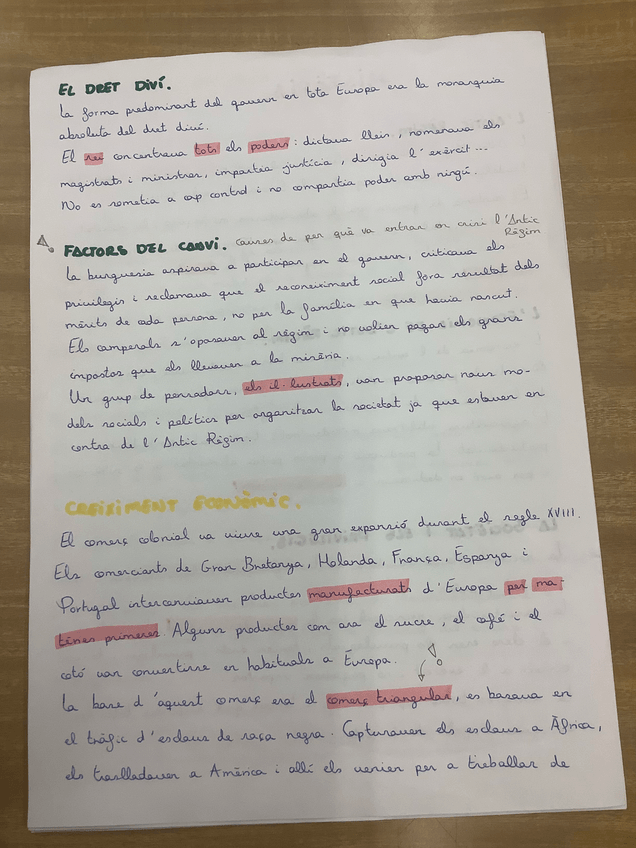 EL DRET DIVÍ.
La forma predominant del govern en tota Europa era la monarquia
absoluta del dret diví.
El rei concentrava tots els poders: dictava lleis, nomenava els
magistrats i ministres, impartia justícia, dirigia l'exèrcit...
No es sometia a cap control i no compartia poder amb ningú.
FACTORS DEL CANVI. Causes de per què va entrar en crisi l'Antic
Règim
La burguesia aspirava a participar en el govern, criticava els
privilegis i reclamava que el reconeixement social fora resultat dels
mèrits de cada persona, no per la família en que havia nascut.
Els camperols s'oposaven al règim i no volien pagar els grans
impostos que els llevaven a la misèria.
Un grup de pensadors, els il·lustrats, van proposar nous mo-
dels socials i polítics per organitzar la societat ja que estaven en
contra de l'Antic Règim.
CREIXIMENT ECONÒMIC.
El comerç colonial va viure una gran expansió durant el segle XVIII.
Els comerciants de Gran Bretanya, Holanda, França, Espanya i
Portugal intercanviaven productes manufacturats d'Europa per ma-
tèries primeres. Alguns productes com ara el sucre, el café i el
cotó van convertirse en habituals a Europa.
La base d'aquest comerç era el comerç triangular, es basava en
el tràfic d'esclaus de raça negra. Capturaven els esclaus a Àfrica,
els traslladaven a Amèrica i allí els venien per a treballar de